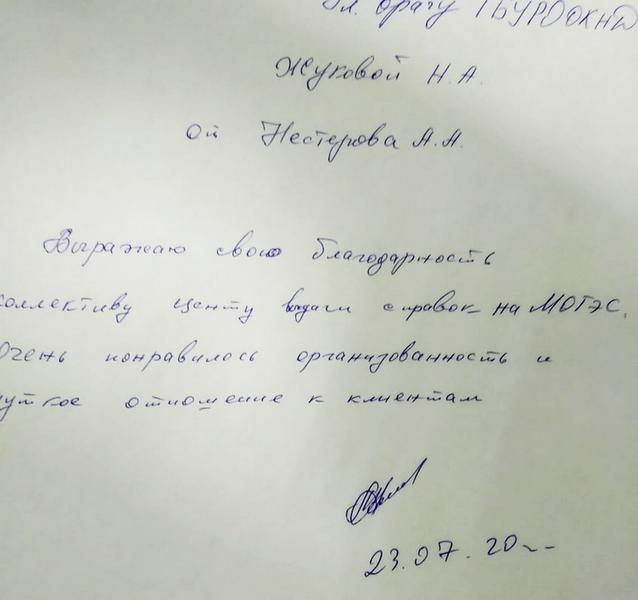 Гл. врагу ГБУРООКНД
Жуковой Н.А.
От Нестерова А.А.
Выражаю свою благодарность
коллективу центу выдаги справок на МОТЭС.
Очень понравилось организованность и
чуткое отношение к клиентам
23.07.20